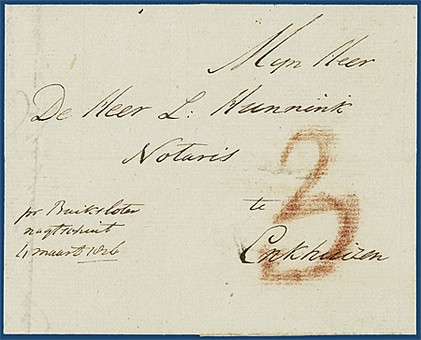 Mijn Heer
De Heer L: Hunnink
Notaris
te
Enkhuizen
3
pr Buiksloter
nagtschuit
4 maart 1826